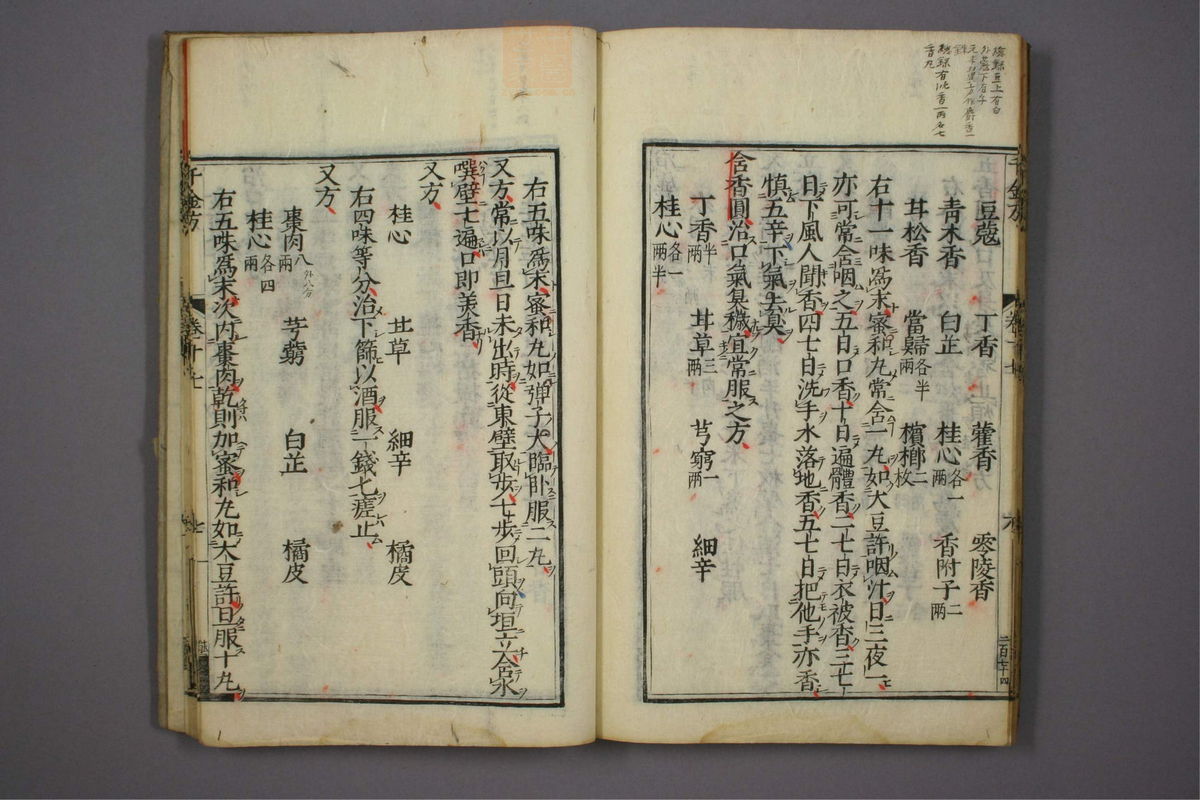 豆蔻 丁香 藿香 零陵香
青木香 白芷 桂心各一兩 香附子二兩
甘松香 當歸各半兩 檳榔二枚
右十一味爲末蜜和丸常含一丸如大豆許咽汁日三夜一
亦可常含咽之五日口香十日遍體香二七日衣被香三七
日下風人聞香四七日洗手水落地香五七日把他手亦香
慎五辛下氣去臭
含香圓治口氣臭穢宜常服之方
丁香半兩 甘草三兩 芎窮一兩 細辛
桂心各一兩半
右五味爲末蜜和丸如彈子大臨臥服二丸
又方常以月旦日未出時從東壁取步七步回頭向垣立含水
噀壁七遍口即美香
又方
桂心 甘草 細辛 橘皮
右四味等分治下篩以酒服一錢匕瘥止
又方
棗肉八兩 外八分 芎藭 白芷 橘皮
桂心各四兩
右五味爲末次内棗肉乾則加蜜和丸如大豆許日服十丸
千金方
卷十七